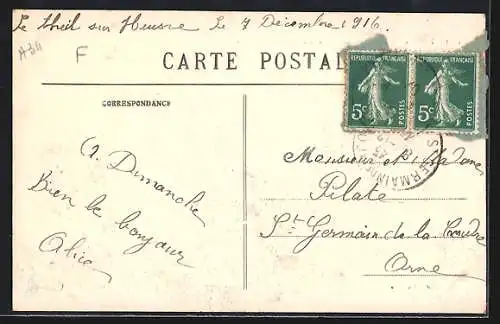 Le theil sur Huisne Le 7 Décembre 1916
A34
F
CARTE POSTAL
RÉPUBLIQUE FRANÇAISE
5c
POSTES
RÉPUBLIQUE FRANÇAISE
5c
POSTES
CORRESPONDANCE
A Dimanche
Bien le bonjour
Alice
Monsieur et Madame
Pilate
St Germain de la Coudre
Orne